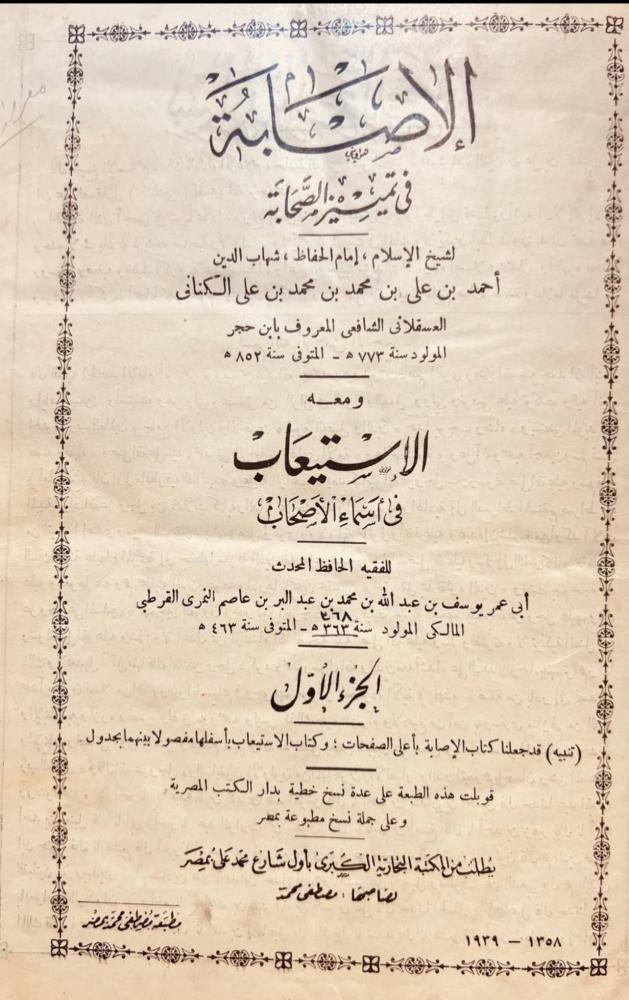 الإصابة
فى تمييز الصحابة
لشيخ الإسلام ، إمام الحفاظ ، شهاب الدين
أحمد بن على بن محمد بن محمد بن على الكنانى
العسقلانى الشافعى المعروف بابن حجر
المولود سنة ٧٧٣ ه – المتوفى سنة ٨٥٢ ه
ومعه
الإستيعاب
فى أسماء الأصحاب
للفقيه الحافظ المحدث
أبى عمر يوسف بن عبد الله بن محمد بن عبد البر بن عاصم النمرى القرطبى
٣٦٨
المالكى المولود سنة ٣٦٣ ه – المتوفى سنة ٤٦٣ ه
الجزء الأول
(تنبيه) قد جعلنا كتاب الإصابة بأعلى الصفحات ؛ وكتاب الاستيعاب بأسفلها مفصولا بينهما بجدول
قوبلت هذه الطبعة على عدة نسخ خطية بدار الكتب المصرية
وعلى جملة نسخ مطبوعة بمصر
يطلب من المكتبة التجارية الكبرى بأول شارع محمد على بمصر
لصاحبها : مصطفى محمد
مطبعة مصطفى محمد بمصر
١٣٥٨ – ١٩٣٩